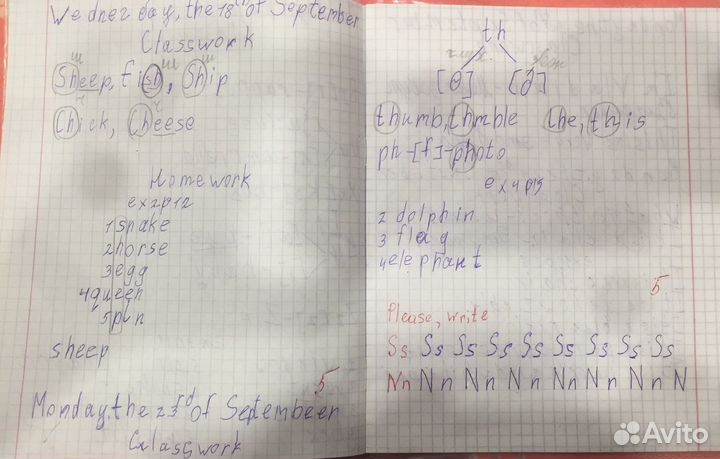 Wednesday, the 18th of September
Classwork
ш ш ш
Sheep, fish, Ship
ч ч
Chick, Cheese
Homework
ex2p12
1 snake
2 horse
3 egg
4 queen
5 pin
sheep
5
Monday, the 23rd of Septembeer
Classwork
th
глух. звон
[θ] [ð]
thumb, thmble the, this
ph-[f]-photo
ex4p13
2 dolphin
3 flag
4 elephant
5
Please, write
Ss Ss Ss Ss Ss Ss Ss Ss Ss
Nn Nn Nn Nn Nn Nn Nn Nn N
Avito